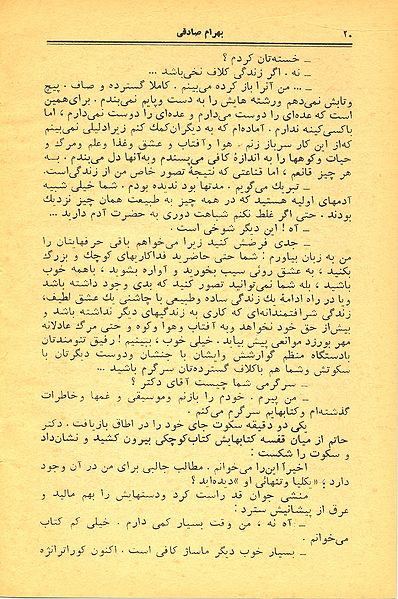 ۲۰
بهرام صادقی
ــ خسته‌تان کردم ؟
ــ نه . اگر زندگی کلاف نخی‌باشد ...
ــ ... من آنرا باز کرده می‌بینم . کاملا گسترده و صاف . پیچ
وتابش نمی‌دهم ورشته هایش را به دست وپایم نمی‌بندم . برای‌همین
است که عده‌ای را دوست می‌دارم و عده‌ای را دوست نمی‌دارم ، اما
باکسی‌کینه ندارم . آماده‌ام که به دیگران‌کمك کنم زیرادلیلی نمی‌بینم
که‌از این کار سرباز زنم . هوا وآفتاب و عشق وغذا وعلم ومرگ و
حیات وکوهها را به اندازهٔ کافی می‌پسندم وبه‌آنها دل می‌بندم . بـه
هر چیز قانعم ، اما قناعتی که نتیجهٔ تصور خاص من از زندگی‌است.
ــ تبریك می‌گویم . مدتها بود ندیده بودم . شما خیلی شبیه
آدمهای اولیه هستید که در همه چیز به طبیعت همان چیز نزدیك
بودند . حتی اگر غلط نکنم شباهت دوری به حضرت آدم دارید ...
ــ آه ! این دیگر شوخی است .
ــ جدی فرض کنید زیرا می‌خواهم باقی حرفهایتان را
من به زبان بیاورم : شما حتی حاضرید فداکاریهای کوچك و بزرگ
بکنید ، به عشق روئی سیب بخورید و آواره بشوید ، باهمه خوب
باشید ، بله شما نمی‌توانید تصور کنید که بدی وجود داشته باشد
وبا در راه ادامهٔ یك زندگی ساده وطبیعی با چاشنی یك عشق لطیف،
زندگی شرافتمندانه‌ای که کاری به زندگیهای دیگر نداشته باشد و
بیش‌از حق خود نخواهد وبه آفتاب وهوا وکوه و حتی مرگ عادلانه
مهر بورزد موانعی پیش بیاید . خیلی خوب ، ببینیم ! رفیق تنومندتان
بادستگاه منظم گوارشش وایشان با جنشان ودوست دیگرتان با
سکوتش وشما هم باکلاف گسترده‌تان سرگرم باشید ...
ــ سرگرمی شما چیست آقای دکتر ؟
ــ من پیرم . خودم را بازنم وموسیقی و غمها وخاطرات
گذشته‌ام وکتابهایم سرگرم می‌کنم .
یکی دو دقیقه سکوت جای خود را در اطاق بازیافت . دکتر
حاتم از میان قفسه کتابهایش کتاب‌کوچکی بیرون کشید و نشان‌داد
و سکوت را شکست :
اخیراً این‌را می‌خوانم . مطالب جالبی برای من در آن وجود
دارد ؛ «یکلیا وتنهائی او »دیده‌اید ؟
منشی جوان قد راست کرد ودستهایش را بهم مالید و
عرق از پیشانیش سترد :
ــ آه نه ، من وقت بسیار کمی دارم . خیلی کم کتاب
می‌خوانم .
ــ بسیار خوب دیگر ماساژ کافی است . اکنون کوراترانژه